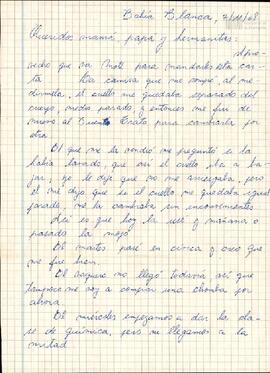 Bahía Blanca, 7/11/68
Queridos mamá, papá y hermanitas:
Aprove
cho que va Moti para mandarles esta car
ta. La camisa que me compré, al me
dírmela, el cuello me quedaba separado del
cuerpo, medio parado y entonces me fui de
nuevo al Buen Trato para cambiarla por
otra.
El que me la vendió me preguntó si la
había lavado, que así el cuello iba a ba
jar, yo le dije que no me animaba, pero
él me dijo que si el cuello me quedaba igual
parado, me la cambiaba sin inconvenientes.
Así es que hoy la usé y mañana o
pasado la mojo.
El martes paré en cívica y creo que
me fue bien.
El aguare no llegó todavía así que
tampoco me voy a comprar una chomba por
ahora.
El miércoles empezamos a dar la cla
se de química, pero no llegamos a la
mitad